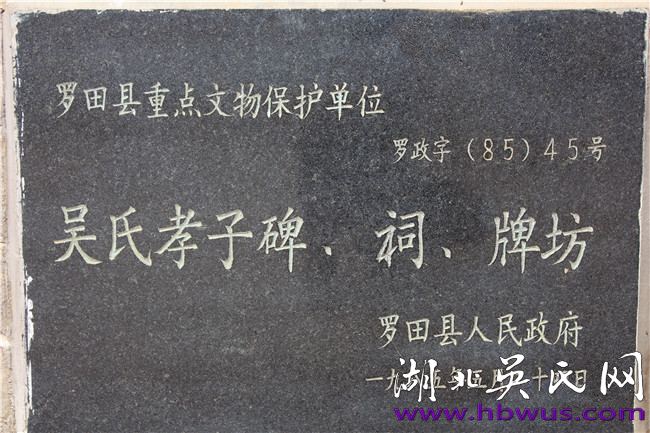 罗田县重点文物保护单位
罗政字（85）45号
吴氏孝子碑、祠、牌坊
罗田县人民政府
湖北吴氏网
www.hbwus.com